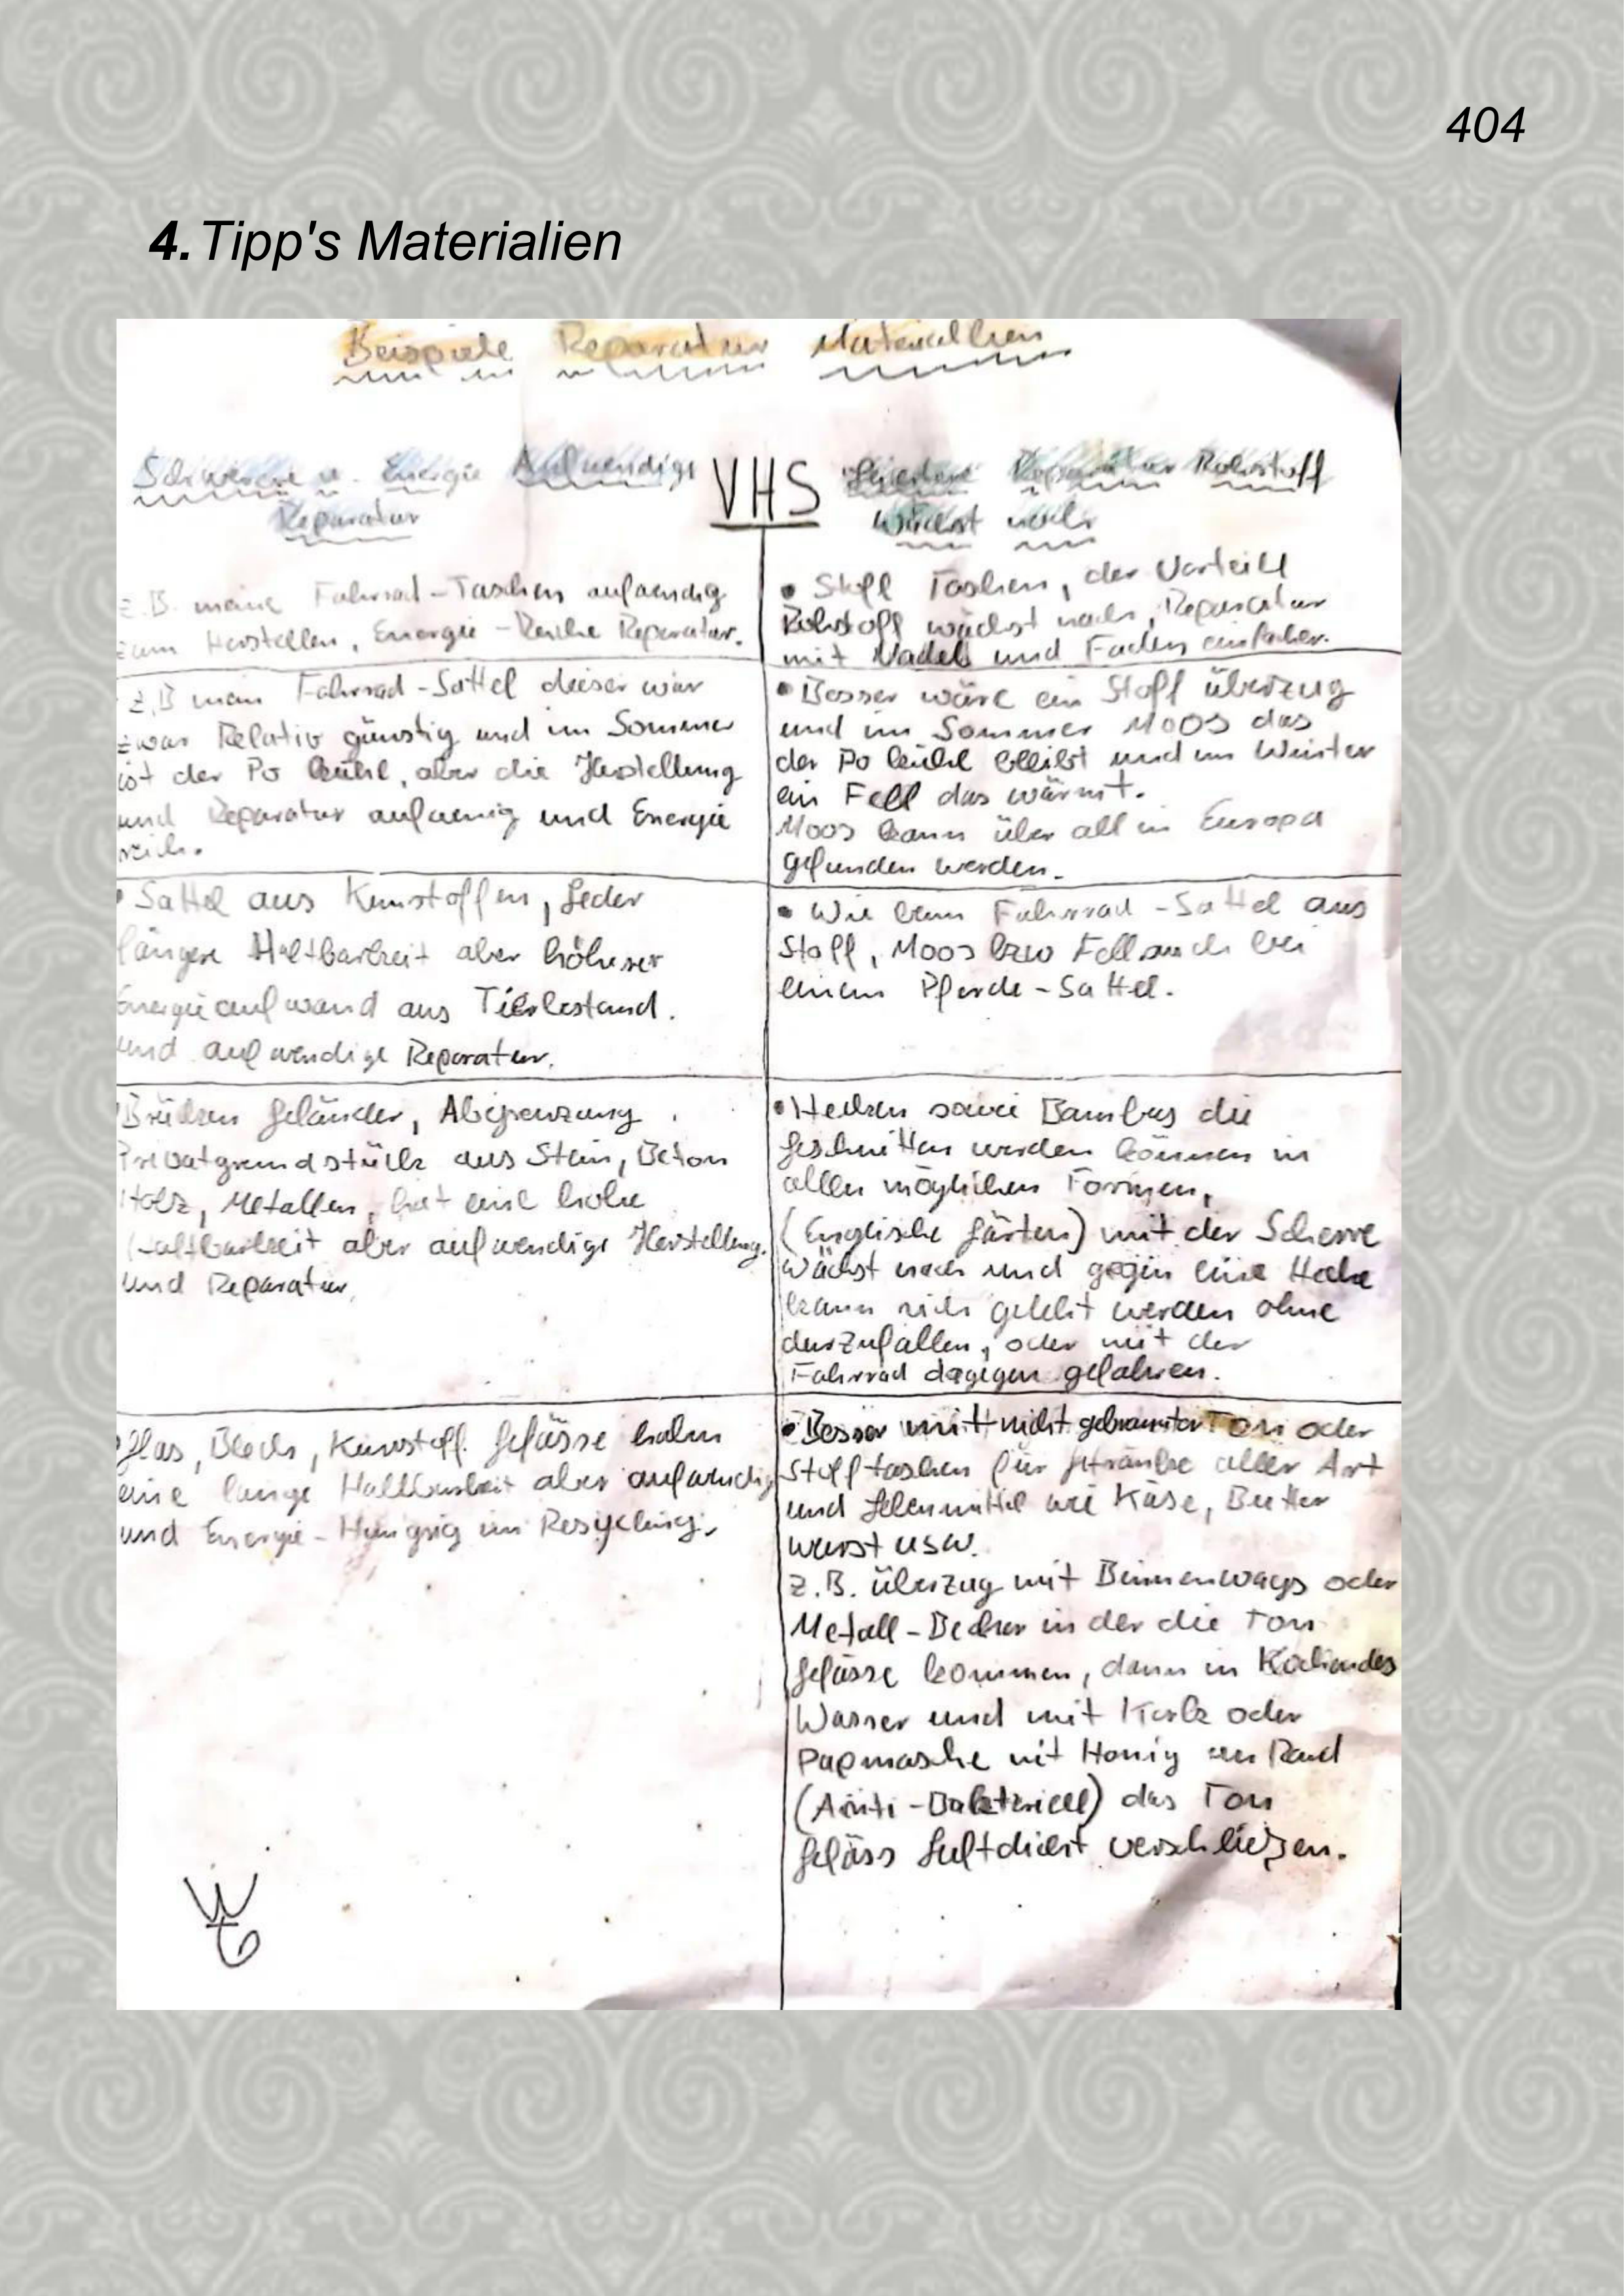 404
4. Tipp's Materialien
Beispiele Reparatur Materiallien
Schwerere u. Energie Aufwendige
Reparatur
VHS
Leichtere Reparatur Rohstoff
Wächst nach
z.B. meine Fahrrad-Taschen aufwendig
zum Herstellen, Energie-Reiche Reparatur.
• Stoff Taschen, der Vorteill
Rohstoff wächst nach, Reparatur
mit Nadel und Faden einfacher.
z.B mein Fahrrad-Sattel dieser war
zwar Relativ günstig und im Sommer
ist der Po kühl, aber die Herstellung
und Reparatur aufwenig und Energie
reich.
• Besser wäre ein Stoff überzug
und im Sommer Moos das
der Po kühl bleibt und im Winter
ein Fell das wärmt.
Moos kann über all in Europa
gefunden werden.
• Sattel aus Kunstoffen, Leder
längere Haltbarkeit aber höherer
Energieaufwand aus Tierbestand.
und aufwendige Reparatur.
• Wie beim Fahrrad-Sattel aus
Stoff, Moos bzw Fell auch bei
einem Pferde-Sattel.
Brücken Geländer, Abgrenzung
Privatgrundstück aus Stein, Beton
Holz, Metallen, hat eine hohe
Haltbarkeit aber aufwendige Herstellung.
und Reparatur.
• Hecken sowie Bambus die
geschnitten werden können in
allen möglichen Formen,
(Englische Gärten) mit der Scherre
Wächst nach und gegen eine Hecke
kann sich geleht werden ohne
durzufallen, oder mit der
Fahrrad dagegen gefahren.
Glas, Blech, Kunstoff Gefässe haben
eine lange Haltbarkeit aber aufwendig
und Energie-Hungrig im Resycling.
• Besser mit nicht gebrannter Ton oder
Stofftaschen für Getränke aller Art
und Lebenmittel wie Käse, Butter
wurst usw.
z.B. überzug mit Bienenwags oder
Metall-Becher in der die Ton
Gefässe kommen, dann in Kochendes
Wasser und mit Kork oder
Papmasche mit Honig am Rand
(Anti-Bakteriell) das Ton
Gefäss Luftdicht verschließen.